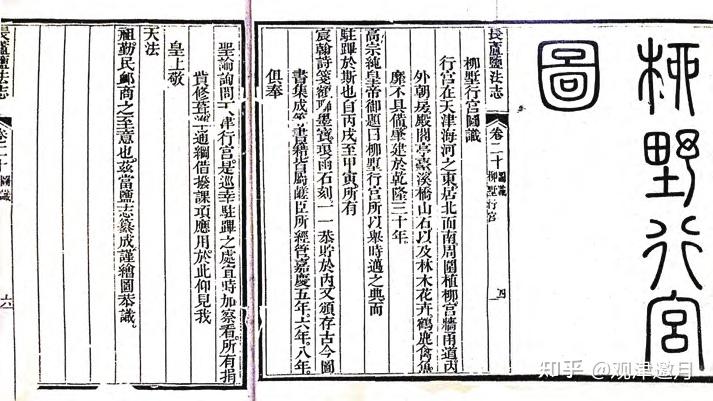 柳墅行宮
圖
長蘆鹽法志 卷二十 圖識 柳墅行宮 四
柳墅行宮圖識
行宮在天津海河之東居北而南周圍植柳宮牆甬道内
外朝房殿閣亭臺溪橋山石以及林木花卉鶴鹿禽魚
靡不具備肇建於乾隆三十年
高宗純皇帝御題曰柳墅行宮所以舉時邁之典而
駐蹕於斯也自丙戌至甲寅所有
宸翰詩箋額聯墨寶琅函石刻一一恭貯於内又頒存古今圖
書集成等書籍皆屬鹺臣所經管嘉慶五年六年八年
俱奉
聖諭詢問天津行宮是巡幸駐蹕之處宜時加察看所有捐
修葺通綱借撥課項應用於此仰見我
皇上敬
天法
祖勤民䘏商之至意也茲當鹽志纂成謹繪圖恭識
長蘆鹽法志 卷二十 圖識 六
知乎 @观津邀月